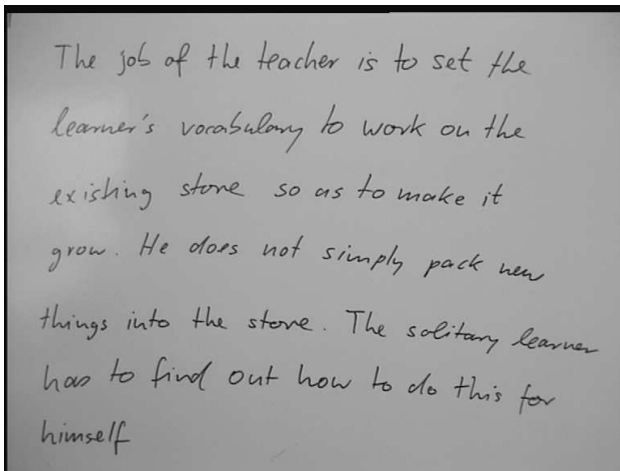 The job of the teacher is to set the
learner's vocabulary to work on the
existing store so as to make it
grow. He does not simply pack new
things into the store. The solitary learner
has to find out how to do this for
himself